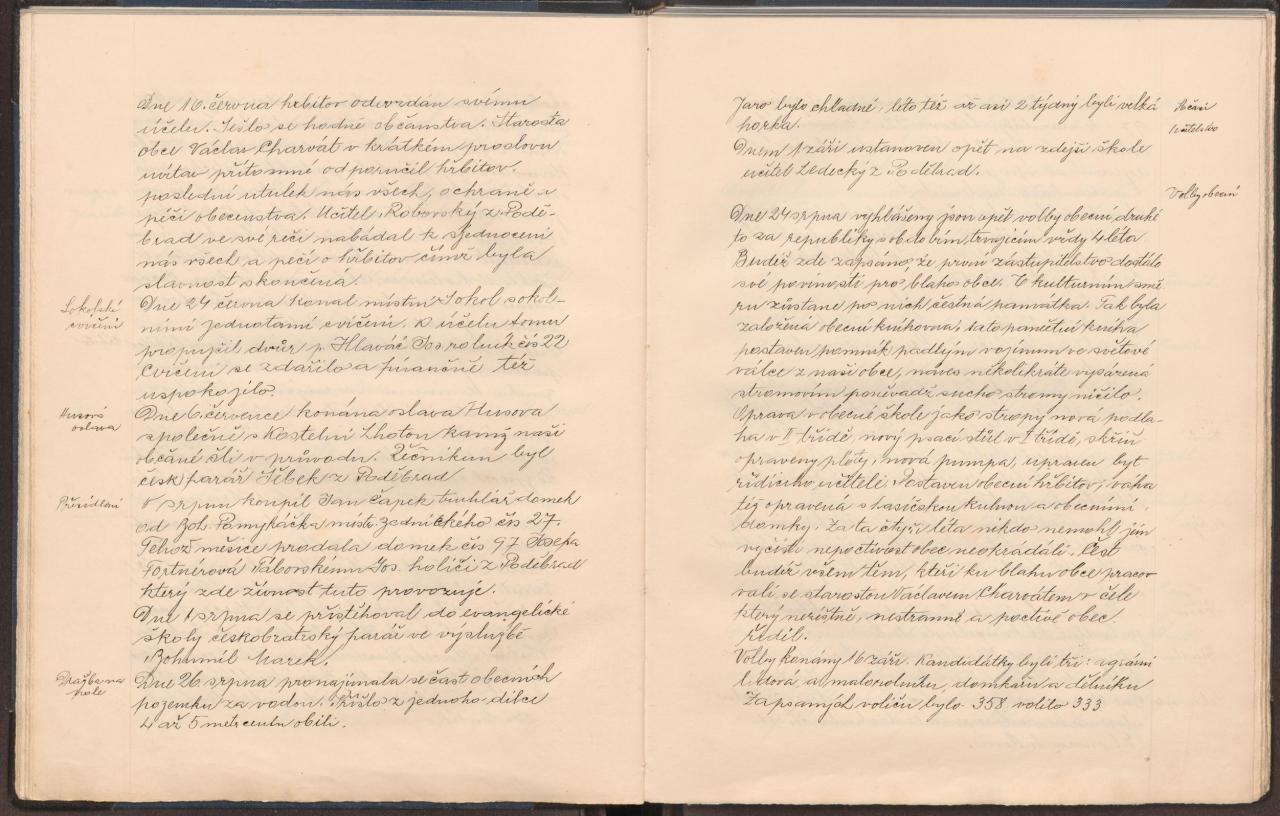 Dne 16. června hřbitov odevzdán svému
účelu. Sešlo se hodně občanstva. Starosta
obce Václav Charvát v krátkém proslovu
uvítav přítomné odporučil hřbitov,
poslední útulek nás všech, ochraně a
péči obecenstva. Učitel Roborský z Podě-
brad ve své řeči nabádal k sjednocení
nás všech a péči o hřbitov čímž byla
slavnost skončena.
Sokolské
cvičení
Dne 24 června konal místní Sokol sokol-
ními jednotami cvičení. K účelu tomu
propujčil dvůr p. Hlaváč Jos. rolník čís 22
Cvičení se zdařilo a finančně též
uspokojilo.
Husova
oslava
Dne 6. července konána oslava Husova
společně s Kostelní Lhotou kamž naši
občané šli v průvodu. Řečníkem byl
česk farář Šébek z Poděbrad
Přesídlení
V srpnu koupil Jan Čapek truhlář domek
od Boh. Pomykáčka místr. zednického čís 27.
Téhož měsíce prodala domek čís 97 Josefa
Fortnérová Táborskému Jos. holiči z Poděbrad
který zde živnost tuto provozuje.
Dne 1 srpna se přistěhoval do evangelické
školy českobratrský farář ve výslužbě
Bohumil Marek.
Dražba na
pole
Dne 26 srpna pronajímala se část obecních
pozemku za vodou. Přišlo z jednoho dílce
4 až 5 metrcentu obilí.
Jaro bylo chladné, léto též až asi 2 týdny byli velká
horka.
Počasí
Učitelstvo
Dnem 1 září ustanoven opět na zdejší škole
učitel Ledecký z Poděbrad.
Volby obecní
Dne 24 srpna vyhlášeny jsou opět volby obecní, druhé
to za republiky s obdobím, trvajícím vždy 4 léta
Budiž zde zapsáno, že první zastupitelstvo dostálo
své povinosti pro blaho obce. V kulturním smě-
ru zůstane po nich čestná památka. Tak byla
založena obecní knihovna, tato pamětní kniha
postaven pomník padlým vojínum ve světové
válce z naší obce, náves několikráte vysázena
stromovím poněvadž sucho stromy ničilo.
Oprava v obecné škole jako stropy nová podla-
ha v II třídě, nový psací stůl v I třídě, skříň
opraveny ploty, nová pumpa, upraven byt
řídícího učitele. Postaven obecní hřbitov, váha
též opravena s hasičskou kulnou a obecními
domky. Za ta čtyři léta nikdo nemohl jim
vyčísti nepoctivost obec neokrádáli. Čest
budiž všem těm, kteří ku blahu obce pracov
vali, se starostou Václavem Charvátem v čele
který nezištně, nestranně a poctivě obec
řídil.
Volby konány 16 září. Kandidátky byli tři: agrární
lidová, a malorolníku, domkářu a dělníku
Zapsaných voliču bylo 358 volilo 333